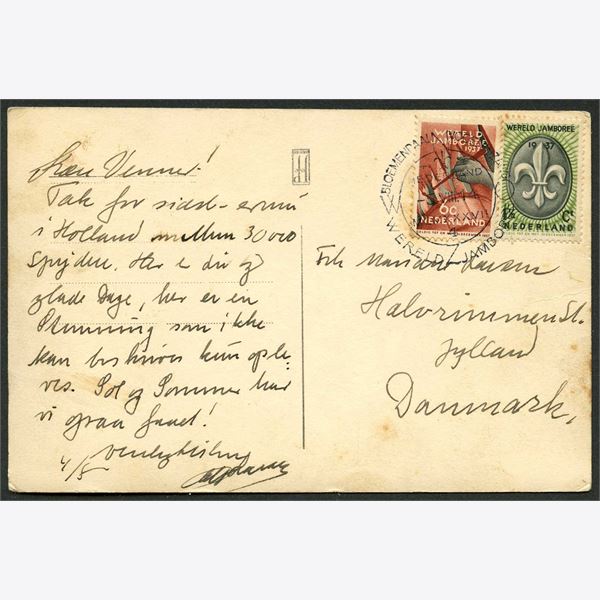 Kære Venner!
Tak for sidst er nu
i Holland mellem 30000
Spejdere. Her er liv og
glade Dage, her er en
Stemning som ikke
kan beskrives kun ople-
ves. Sol og Sommer har
vi ogsaa faaet!
venlig hilsen
4/5
Frk
Halvrimmen St.
Jylland
Danmark,
BLOEMENDAAL
WERELD JAMBOREE
WERELD
JAMBOREE
1937
6C
NEDERLAND
WERELD JAMBOREE
1937
1½ Ct
NEDERLAND